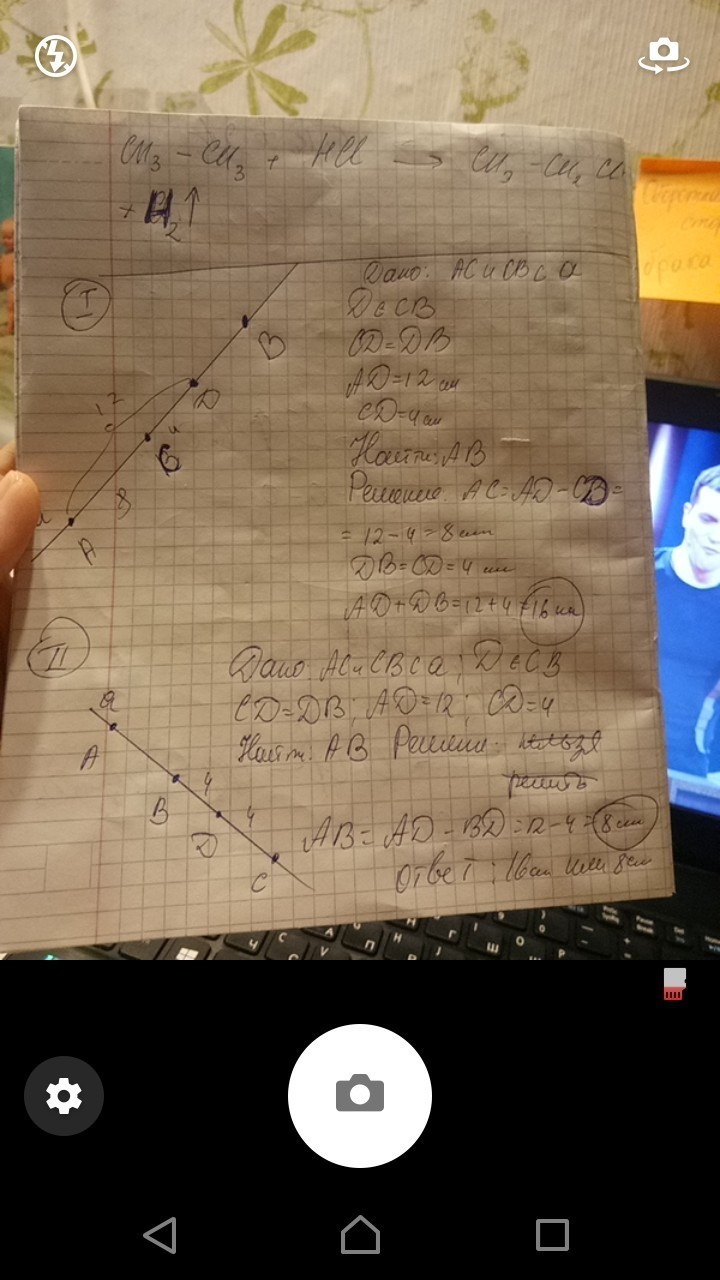 CH3 – CH3 + HCl → CH3 – CH2 Cl
+ H2↑
I
Дано: AC и CB ⊂ a
D ∈ CB
CD = DB
AD = 12 см
CD = 4 см
Найти: AB
Решение. AC = AD – CD =
= 12 – 4 = 8 см
DB = CD = 4 см
AD + DB = 12 + 4 = 16 см
B
D
12
4
B
8
a
A
II
Дано: AC и CB ⊂ a; D ∈ CB
CD = DB; AD = 12; CD = 4
Найти: AB Решение: нельзя
решить
AB = AD – BD = 12 – 4 = 8 см
Ответ: 16 см или 8 см
a
A
B
4
D
4
C